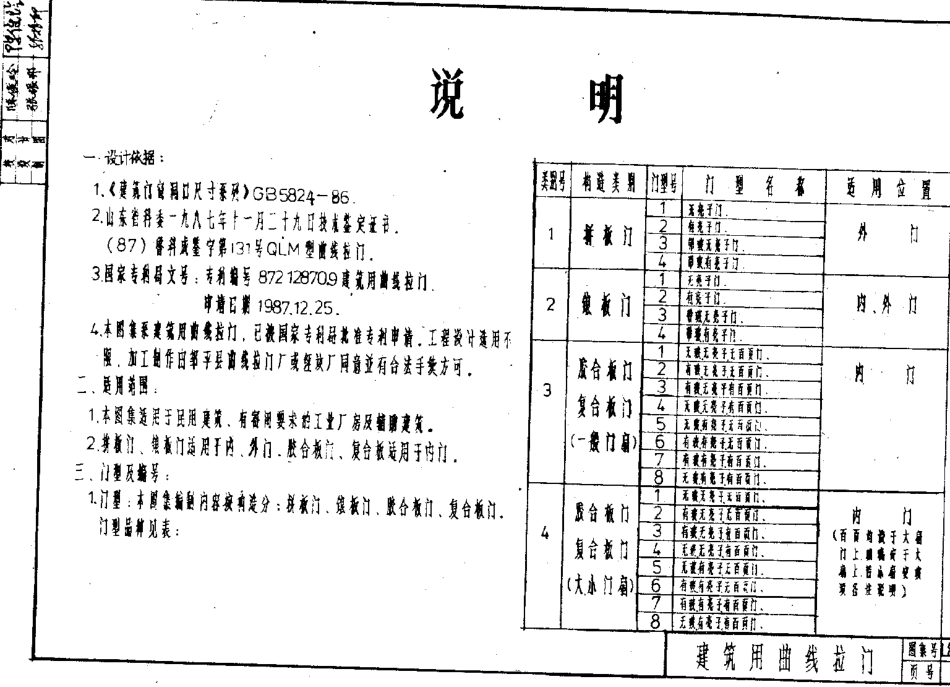 说 明
一 设计依据：
1.《建筑门窗洞口尺寸系列》GB5824-86.
2.山东省科委一九八七年十一月二十九日技术鉴定证书.
(87)鲁科成鉴字第131号QLM型曲线拉门.
3.国家专利局文号：专利编号87212870.9建筑用曲线拉门.
申请日期1987.12.25.
4.本图集系建筑用曲线拉门，已被国家专利局批准专利申请。工程设计选用不
限，加工制作由邹平县曲线拉门厂或经该厂同意并有合法手续方可。
二、适用范围：
1.本图集适用于民用建筑、有密闭要求的工业厂房及辅助建筑。
2.拼板门、镶板门适用于内、外门.胶合板门、复合板适用于内门.
三、门型及编号：
1.门型：本图集编制内容按构造分：拼板门、镶板门、胶合板门、复合板门.
门型品种见表：
类型号 构造类别 门型号 门型名称 适用位置
1 拼板门 外门
1 无亮子门.
2 有亮子门.
3 带玻无亮子门.
4 带玻有亮子门.
2 镶板门 内、外门
1 无亮子门.
2 有亮子门.
3 带玻无亮子门.
4 带玻有亮子门.
3 胶合板门 复合板门 (一般门扇) 内门
1 无玻无亮子无百页门.
2 有玻无亮子无百页门.
3 有玻无亮子有百页门.
4 无玻无亮子有百页门.
5 无玻有亮子无百页门.
6 有玻有亮子无百页门.
7 有玻有亮子有百页门.
8 无玻有亮子有百页门.
4 胶合板门 复合板门 (大小门扇) 内门
1 无玻无亮子无百页门.
2 有玻无亮子无百页门.
3 有玻无亮子有百页门.
4 无玻无亮子有百页门.
5 无玻有亮子无百页门.
6 有玻有亮子无百页门.
7 有玻有亮子有百页门.
8 无玻有亮子有百页门.
(百页均设于大扇
门上.玻璃设于大
扇上.
建筑用曲线拉门
图集号
页号